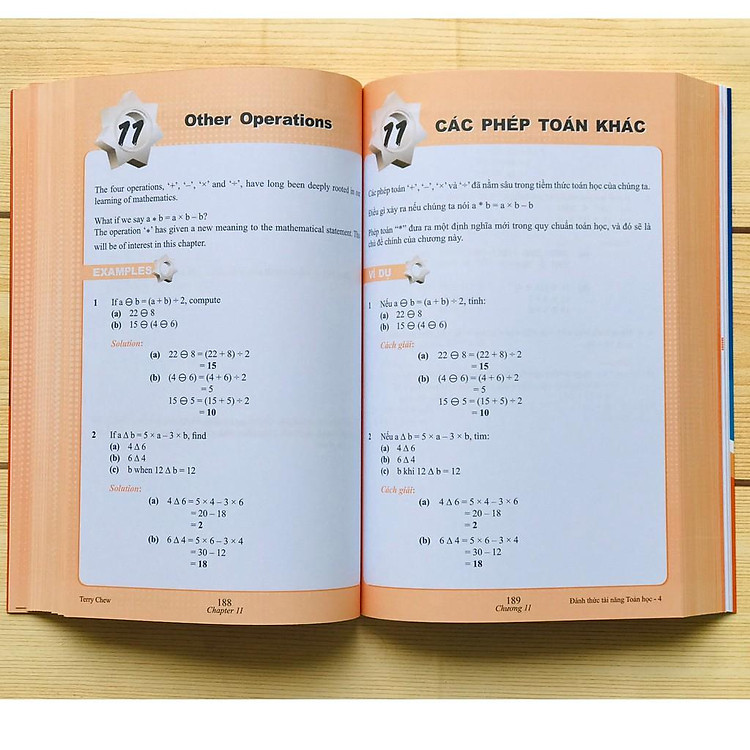 11
Other Operations
The four operations, ‘+’, ‘–’, ‘×’ and ‘÷’, have long been deeply rooted in our
learning of mathematics.
What if we say a * b = a × b – b?
The operation ‘*’ has given a new meaning to the mathematical statement. This
will be of interest in this chapter.
EXAMPLES
1 If a ⊖ b = (a + b) ÷ 2, compute
(a) 22 ⊖ 8
(b) 15 ⊖ (4 ⊖ 6)
Solution:
(a) 22 ⊖ 8 = (22 + 8) ÷ 2
= 15
(b) (4 ⊖ 6) = (4 + 6) ÷ 2
= 5
15 ⊖ 5 = (15 + 5) ÷ 2
= 10
2 If a Δ b = 5 × a – 3 × b, find
(a) 4 Δ 6
(b) 6 Δ 4
(c) b when 12 Δ b = 12
Solution:
(a) 4 Δ 6 = 5 × 4 – 3 × 6
= 20 – 18
= 2
(b) 6 Δ 4 = 5 × 6 – 3 × 4
= 30 – 12
= 18
Terry Chew
188
Chapter 11
11
CÁC PHÉP TOÁN KHÁC
Các phép toán ‘+’, ‘–’, ‘×’ và ‘÷’ đã nằm sâu trong tiềm thức toán học của chúng ta.
Điều gì xảy ra nếu chúng ta nói a * b = a × b – b
Phép toán “*” đưa ra một định nghĩa mới trong quy chuẩn toán học, và đó sẽ là
chủ đề chính của chương này.
VÍ DỤ
1 Nếu a ⊖ b = (a + b) ÷ 2, tính:
(a) 22 ⊖ 8
(b) 15 ⊖ (4 ⊖ 6)
Cách giải:
(a) 22 ⊖ 8 = (22 + 8) ÷ 2
= 15
(b) (4 ⊖ 6) = (4 + 6) ÷ 2
= 5
15 ⊖ 5 = (15 + 5) ÷ 2
= 10
2 Nếu a Δ b = 5 × a – 3 × b, tìm:
(a) 4 Δ 6
(b) 6 Δ 4
(c) b khi 12 Δ b = 12
Cách giải:
(a) 4 Δ 6 = 5 × 4 – 3 × 6
= 20 – 18
= 2
(b) 6 Δ 4 = 5 × 6 – 3 × 4
= 30 – 12
= 18
189
Chương 11
Đánh thức tài năng Toán học - 4